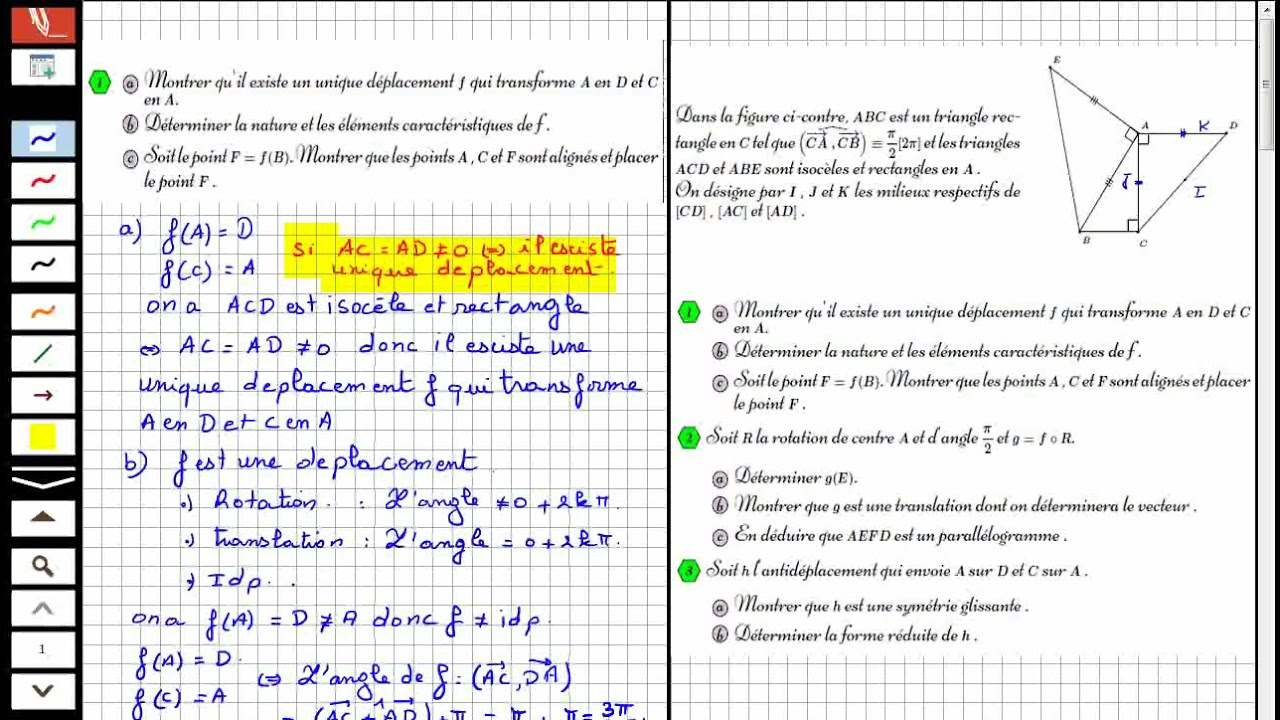 1 a Montrer qu'il existe un unique déplacement f qui transforme A en D et C
en A.
b Déterminer la nature et les éléments caractéristiques de f.
c Soit le point F = f(B). Montrer que les points A, C et F sont alignés et placer
le point F.
a) f(A) = D
f(C) = A
Si AC = AD ≠ 0 ⇔ il esciste
unique deplacement
on a ACD est isocèle et rectangle
⇔ AC = AD ≠ 0 donc il esciste une
unique deplacement f qui transforme
A en D et C en A
b) f est une deplacement
•) Rotation : L'angle ≠ 0 + 2kπ.
•) translation : L'angle = 0 + 2kπ.
•) Idp.
on a f(A) = D ≠ A donc f ≠ idp.
f(A) = D
f(C) = A
⇔ L'angle de f : (AC, DA)
Dans la figure ci-contre, ABC est un triangle rec-
tangle en C tel que (CA, CB) ≡ π/2 [2π] et les triangles
ACD et ABE sont isocèles et rectangles en A.
On désigne par I, J et K les milieux respectifs de
[CD], [AC] et [AD].
E
A
K
D
J
I
B
C
1 a Montrer qu'il existe un unique déplacement f qui transforme A en D et C
en A.
b Déterminer la nature et les éléments caractéristiques de f.
c Soit le point F = f(B). Montrer que les points A, C et F sont alignés et placer
le point F.
2 Soit R la rotation de centre A et d'angle π/2 et g = f ∘ R.
a Déterminer g(E).
b Montrer que g est une translation dont on déterminera le vecteur.
c En déduire que AEFD est un parallélogramme.
3 Soit h l'antidéplacement qui envoie A sur D et C sur A.
a Montrer que h est une symétrie glissante.
b Déterminer la forme réduite de h.
1